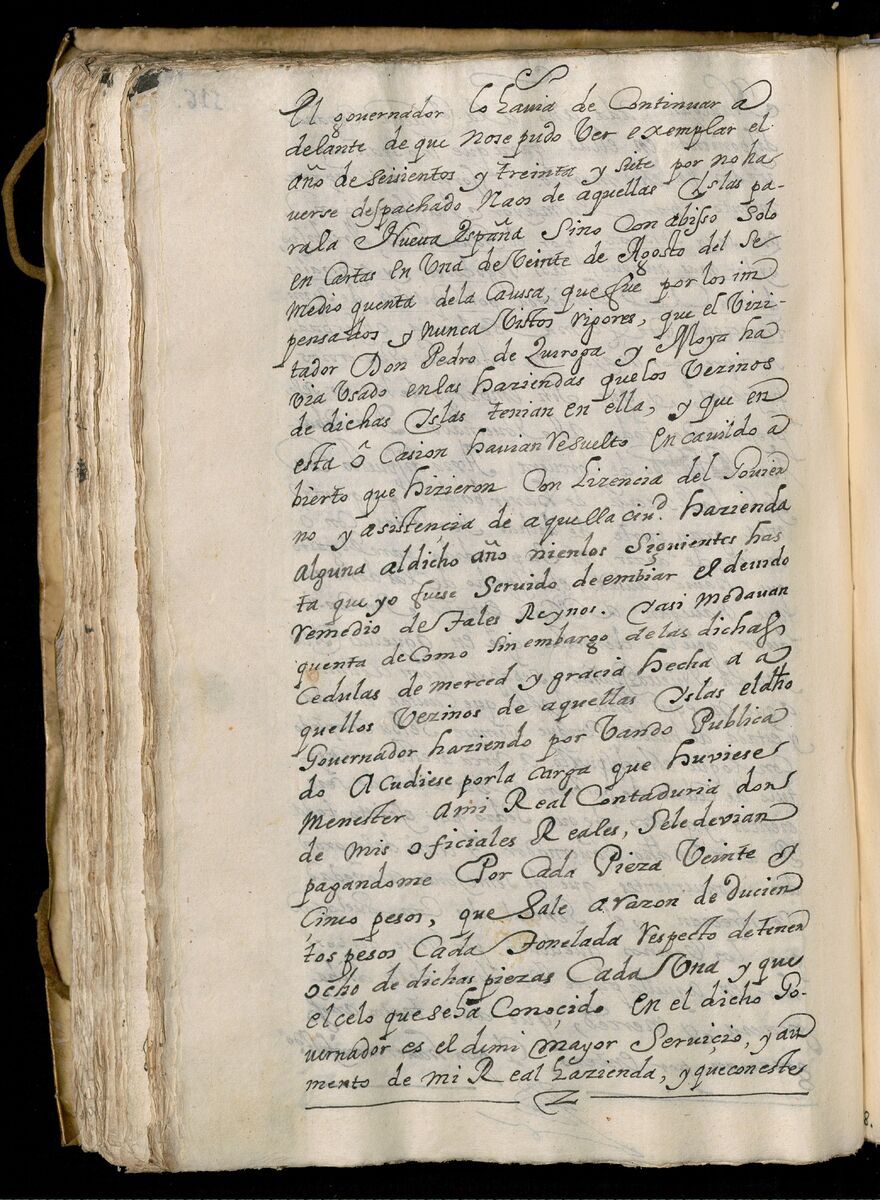 El governador lo havia de Continuar a
delante de que nose pudo Ver exemplar el
año de seisientos y treinta y siete por no ha
verse despachado Naos de aquellas Yslas pa-
rala Nueva España Sino Con abisso Solo
en Cartas en Una de Veinte de Agosto del Se
medio quenta dela Caussa, que fue por los im
pensados y nunca Vistos rigores, que el Vizi-
tador Don Pedro de Quiroga y Moya ha
via Usado en las haziendas quelos Vezinos
de dichas Yslas tenian en ella, y que en
esta ô Casion havian resuelto en cavildo a
bierto que hizieron Con Lizencia del Govier
no y asistencia de aquella ciud. hazienda
alguna al dicho año nienlos Siguientes has
ta que yo fuese Servido de embiar el devido
remedio de Tales Reynos. Yasi medavan
quenta de Como sin embargo delas dichas
Cedulas de merced y gracia hecha a a
quellos Vezinos de aquellas Yslas el dho
Governador haziendo por Vando Publica
do Acudiese porla carga que huviese
menester ami Real Contaduria don
de mis oficiales Reales, Sele devian
pagandome Por Cada Pieza Veinte y
Cinco pesos, que Sale arazon de ducien
tos pesos Cada Tonelada respecto detener
ocho de dichas piezas Cada Una y que
el celo que se ha Conocido en el dicho Go-
vernador es el demi mayor Servicio, y au
mento de mi Real hazienda, y que con este